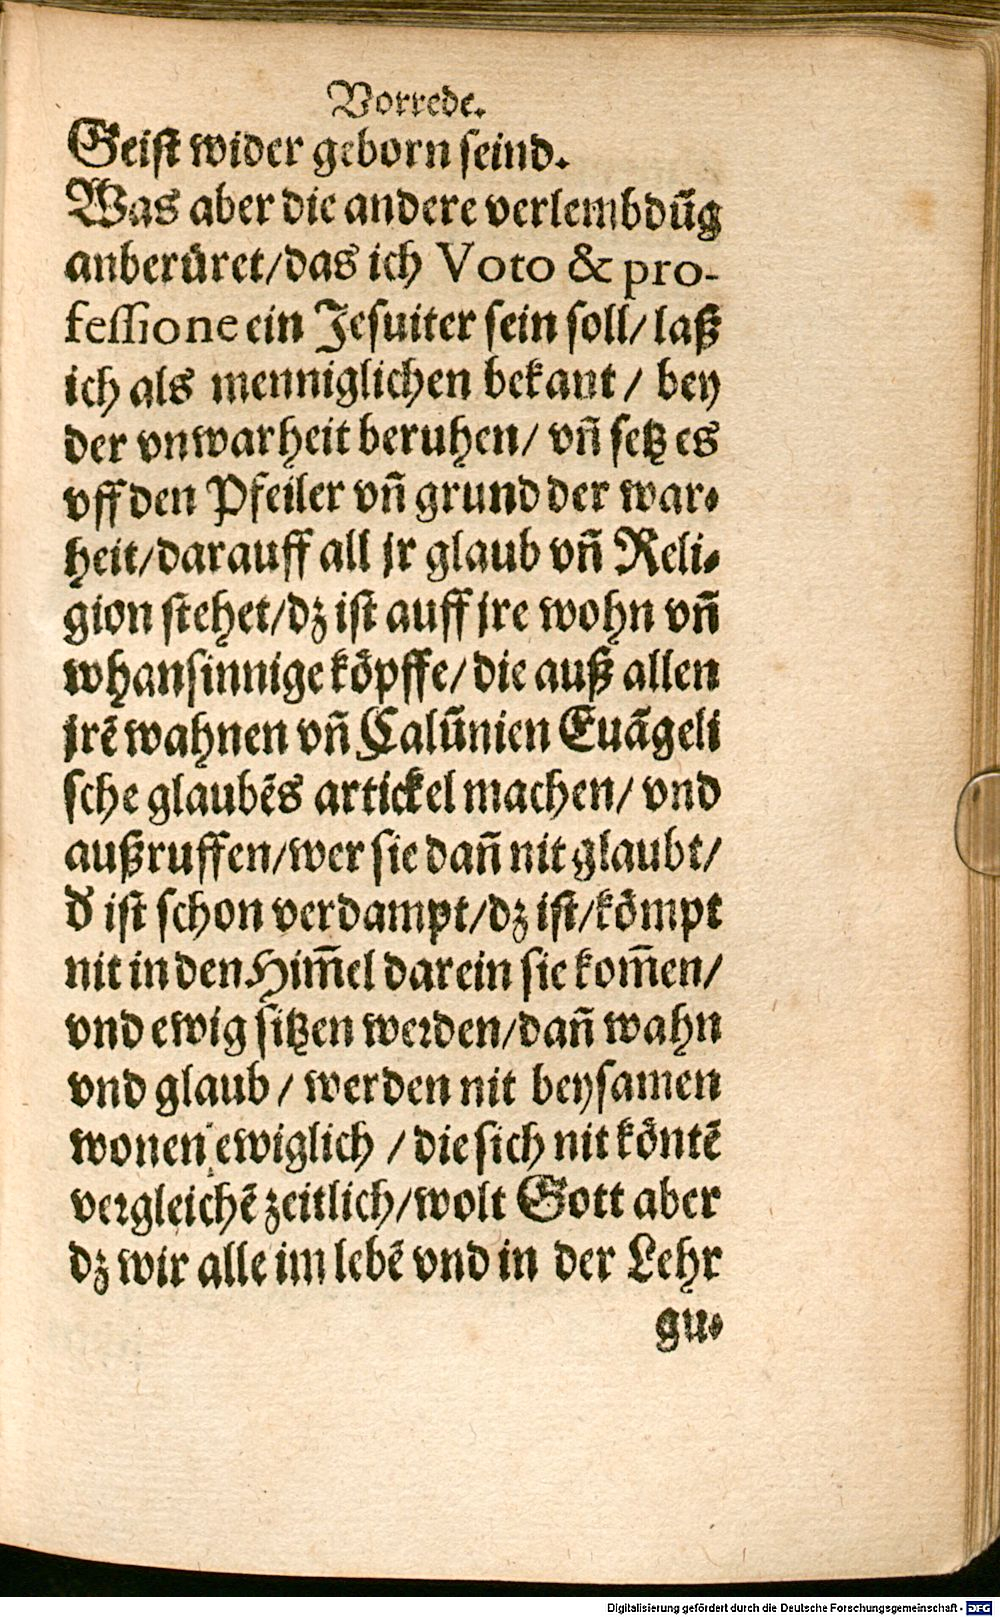 Vorrede.
Geist wider geborn seind.
Was aber die andere verlembdũg
anberüret/das ich Voto & pro-
fessione ein Jesuiter sein soll/ laß
ich als menniglichen bekant / bey
der vnwarheit beruhen/ vñ setz es
vff den Pfeiler vñ grund der war-
heit/darauff all jr glaub vñ Reli-
gion stehet/dz ist auff jre wohn vñ
whansinnige köpffe/ die auß allen
jrẽ wahnen vñ Calũnien Euãgeli
sche glaubẽs artickel machen/ vnd
außruffen/wer sie dañ nit glaubt/
đ ist schon verdampt/dz ist/kömpt
nit in den Him̃el darein sie kom̃en/
vnd ewig sitzen werden/dañ wahn
vnd glaub / werden nit beysamen
wonen ewiglich / die sich nit köntẽ
vergleichẽ zeitlich/wolt Gott aber
dz wir alle im lebẽ vnd in der Lehr
gu-
Digitalisierung gefördert durch die Deutsche Forschungsgemeinschaft - DFG